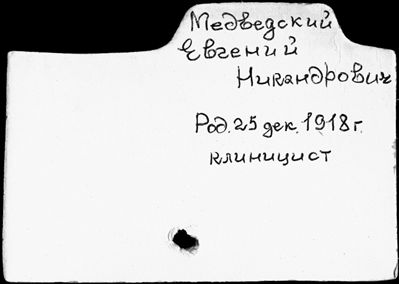 Медведский
Евгений
Никандрович
Род. 25 дек. 1918 г.
клиницист